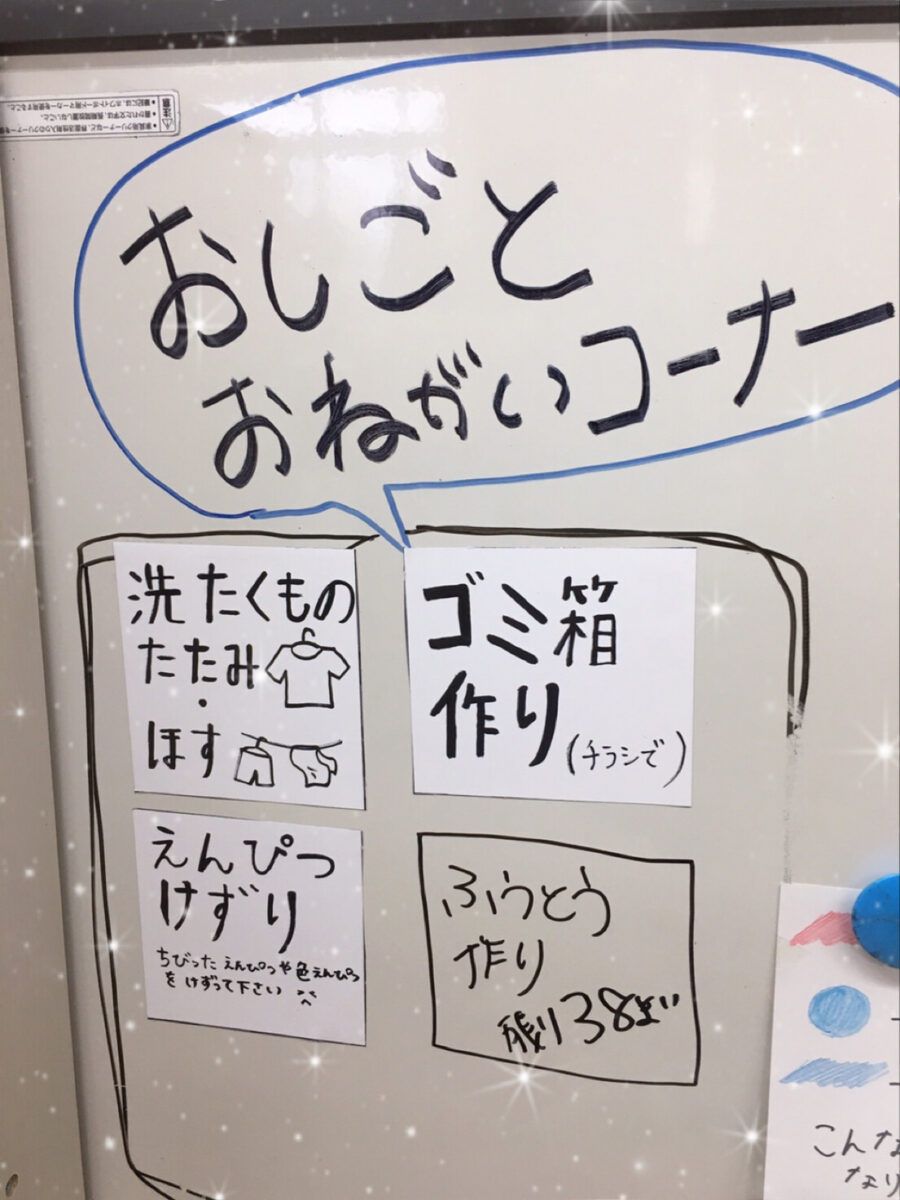 おしごと
おねがいコーナー
洗たくもの
たたみ
・
ほす
ゴミ箱
作り
(チラシで)
えんぴつ
けずり
ちびった えんぴつや色えんぴつ
を けずって下さい
ふうとう
作り
残り38まい
こんな
なり